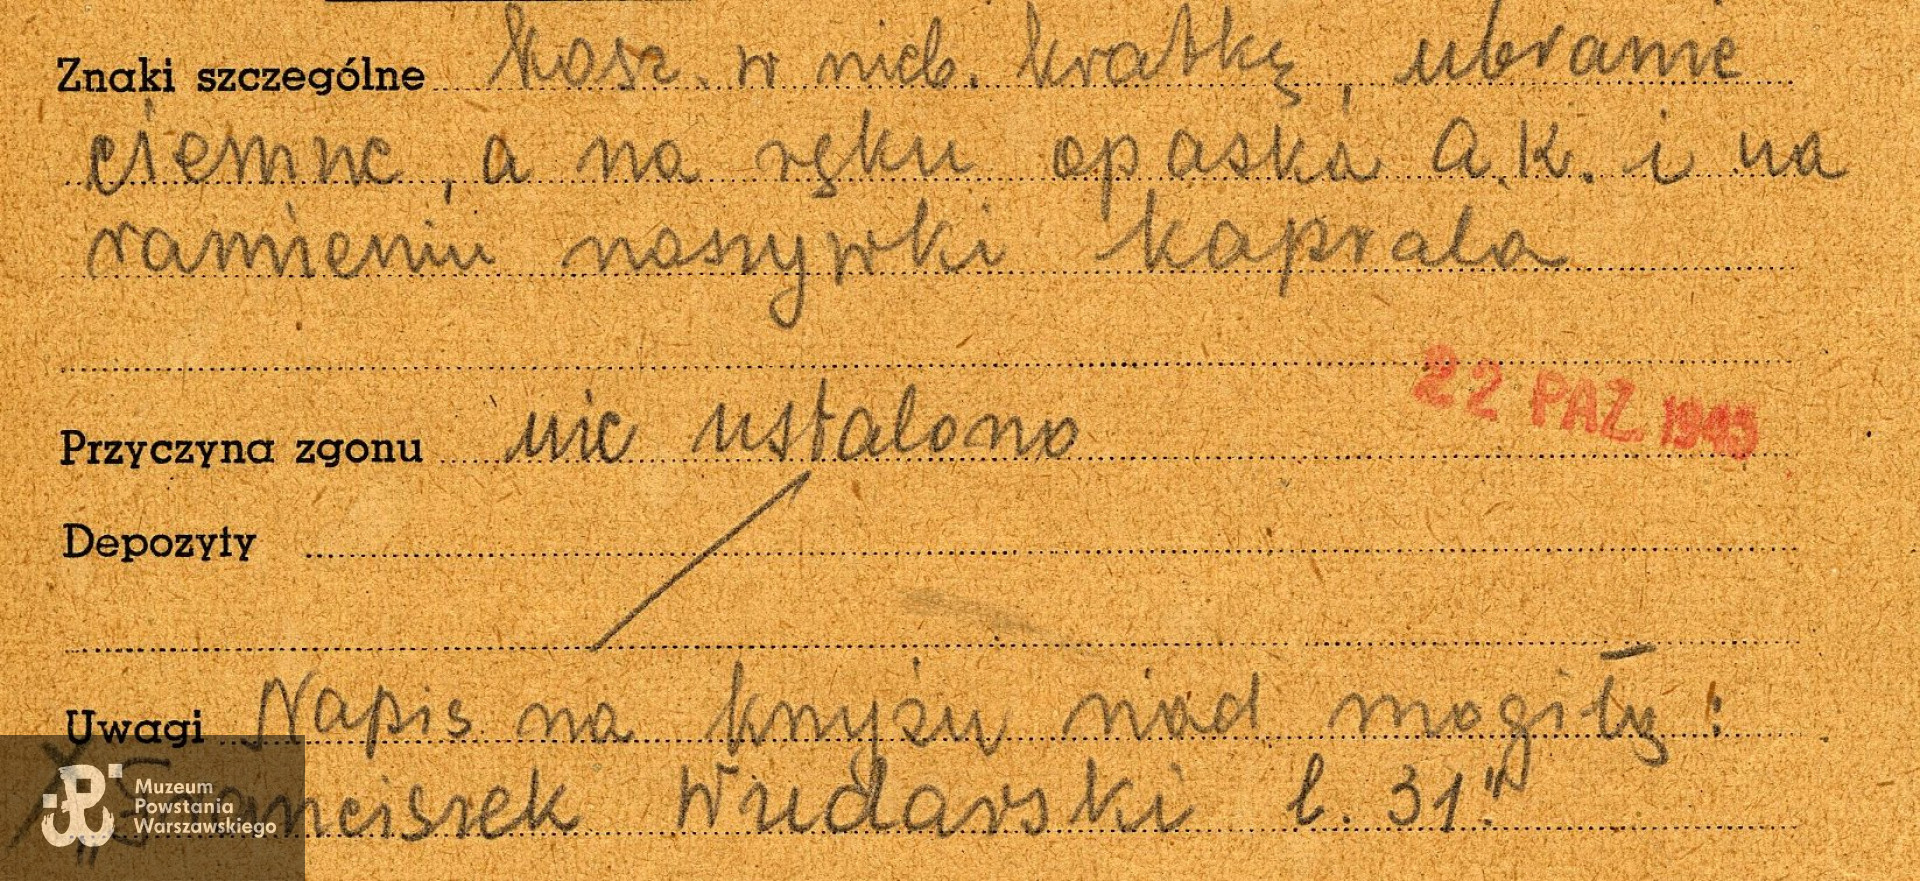 Znaki szczególne Kosz. w nieb. kratkę, ubranie
ciemne, a na ręku opaska A.K. i na
ramieniu naszywki kaprala
22 PAŹ. 1945
Przyczyna zgonu nie ustalono
Depozyty
Uwagi Napis na knyżu nad mogiłą:
Franciszek Wudarski l. 31."
Muzeum
Powstania
Warszawskiego